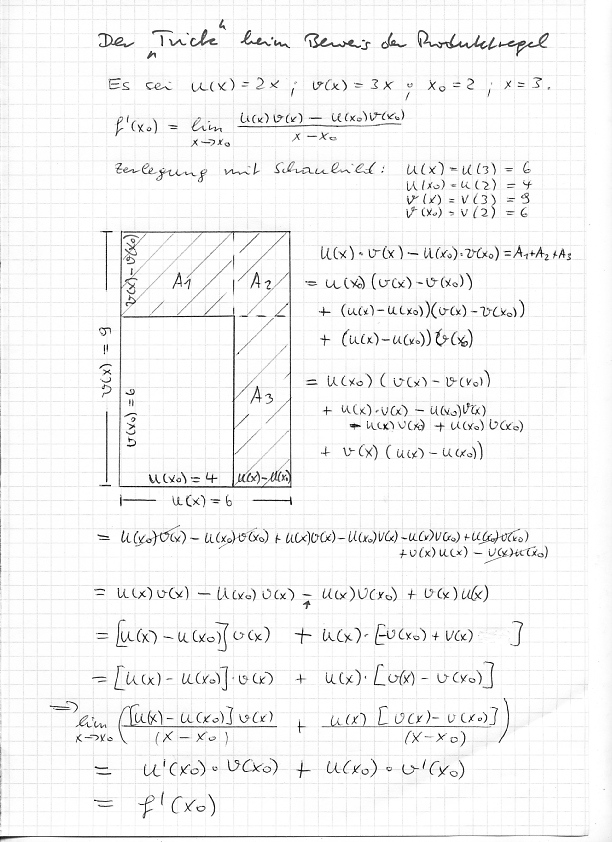 Der "Trick" beim Beweis der Produktregel
Es sei u(x) = 2x ; v(x) = 3x ; x₀ = 2 ; x = 3.
f'(x₀) = lim x→x₀ (u(x)v(x) − u(x₀)v(x₀)) / (x − x₀)
Zerlegung mit Schaubild: u(x) = u(3) = 6
u(x₀) = u(2) = 4
v(x) = v(3) = 9
v(x₀) = v(2) = 6
v(x) − v(x₀)
A1
A2
v(x) = 9
v(x₀) = 6
A3
u(x₀) = 4
u(x) − u(x₀)
u(x) = 6
u(x) · v(x) − u(x₀) · v(x₀) = A1 + A2 + A3
= u(x₀) (v(x) − v(x₀))
+ (u(x) − u(x₀))(v(x) − v(x₀))
+ (u(x) − u(x₀)) v(x₀)
= u(x₀) (v(x) − v(x₀))
+ u(x) · v(x) − u(x₀)v(x)
− u(x)v(x₀) + u(x₀)v(x₀)
+ v(x) (u(x) − u(x₀))
= u(x₀)v(x) − u(x₀)v(x₀) + u(x)v(x) − u(x₀)v(x) − u(x)v(x₀) + u(x₀)v(x₀)
+ v(x)u(x) − v(x)u(x₀)
= u(x)v(x) − u(x₀)v(x) − u(x)v(x₀) + v(x)u(x)
= [u(x) − u(x₀)] v(x) + u(x) · [−v(x₀) + v(x)]
= [u(x) − u(x₀)] · v(x) + u(x) · [v(x) − v(x₀)]
⇒ lim x→x₀ ([u(x) − u(x₀)] v(x) / (x − x₀) + u(x) [v(x) − v(x₀)] / (x − x₀))
= u'(x₀) · v(x₀) + u(x₀) · v'(x₀)
= f'(x₀)